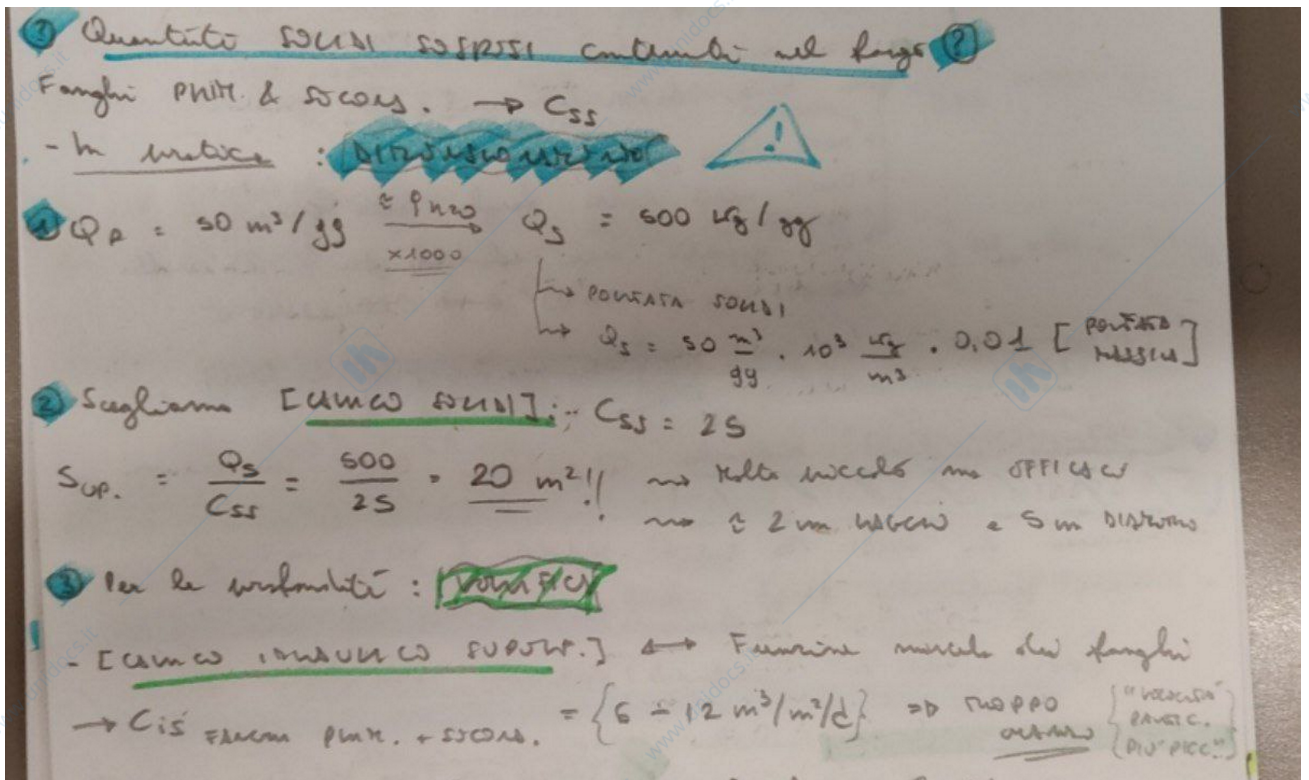 ③ Quantità SOLIDI SOSPESI contenuti nel fango ?
Fanghi PRIM. & SECONS. → Css
- In pratica : DIMENSIONAMENTO !
① QR = 50 m³/gg ≈ ρH2O ×1000 → Qs = 500 kg/gg
↳ PORTATA SOLIDI
↳ Qs = 50 m³/gg · 10³ kg/m³ · 0,01 [PORTATA MASSICA]
② Scegliamo [CARICO SOLIDI]: Css = 25
SUP. = Qs/Css = 500/25 = 20 m²!! ⇝ Molto piccolo ma EFFICACE
⇝ ≈ 2 m RAGGIO e 5 m DIAMETRO
③ Per la profondità : VERIFICA
- [CARICO IDRAULICO SUPERF.] ↔ Funzione miscela dei fanghi
→ Cis FANGHI PRIM. + SECONS. = {6 ÷ 12 m³/m²/d} ⇒ TROPPO {"VELOCITÀ" PARTIC. PIÙ PICC."}